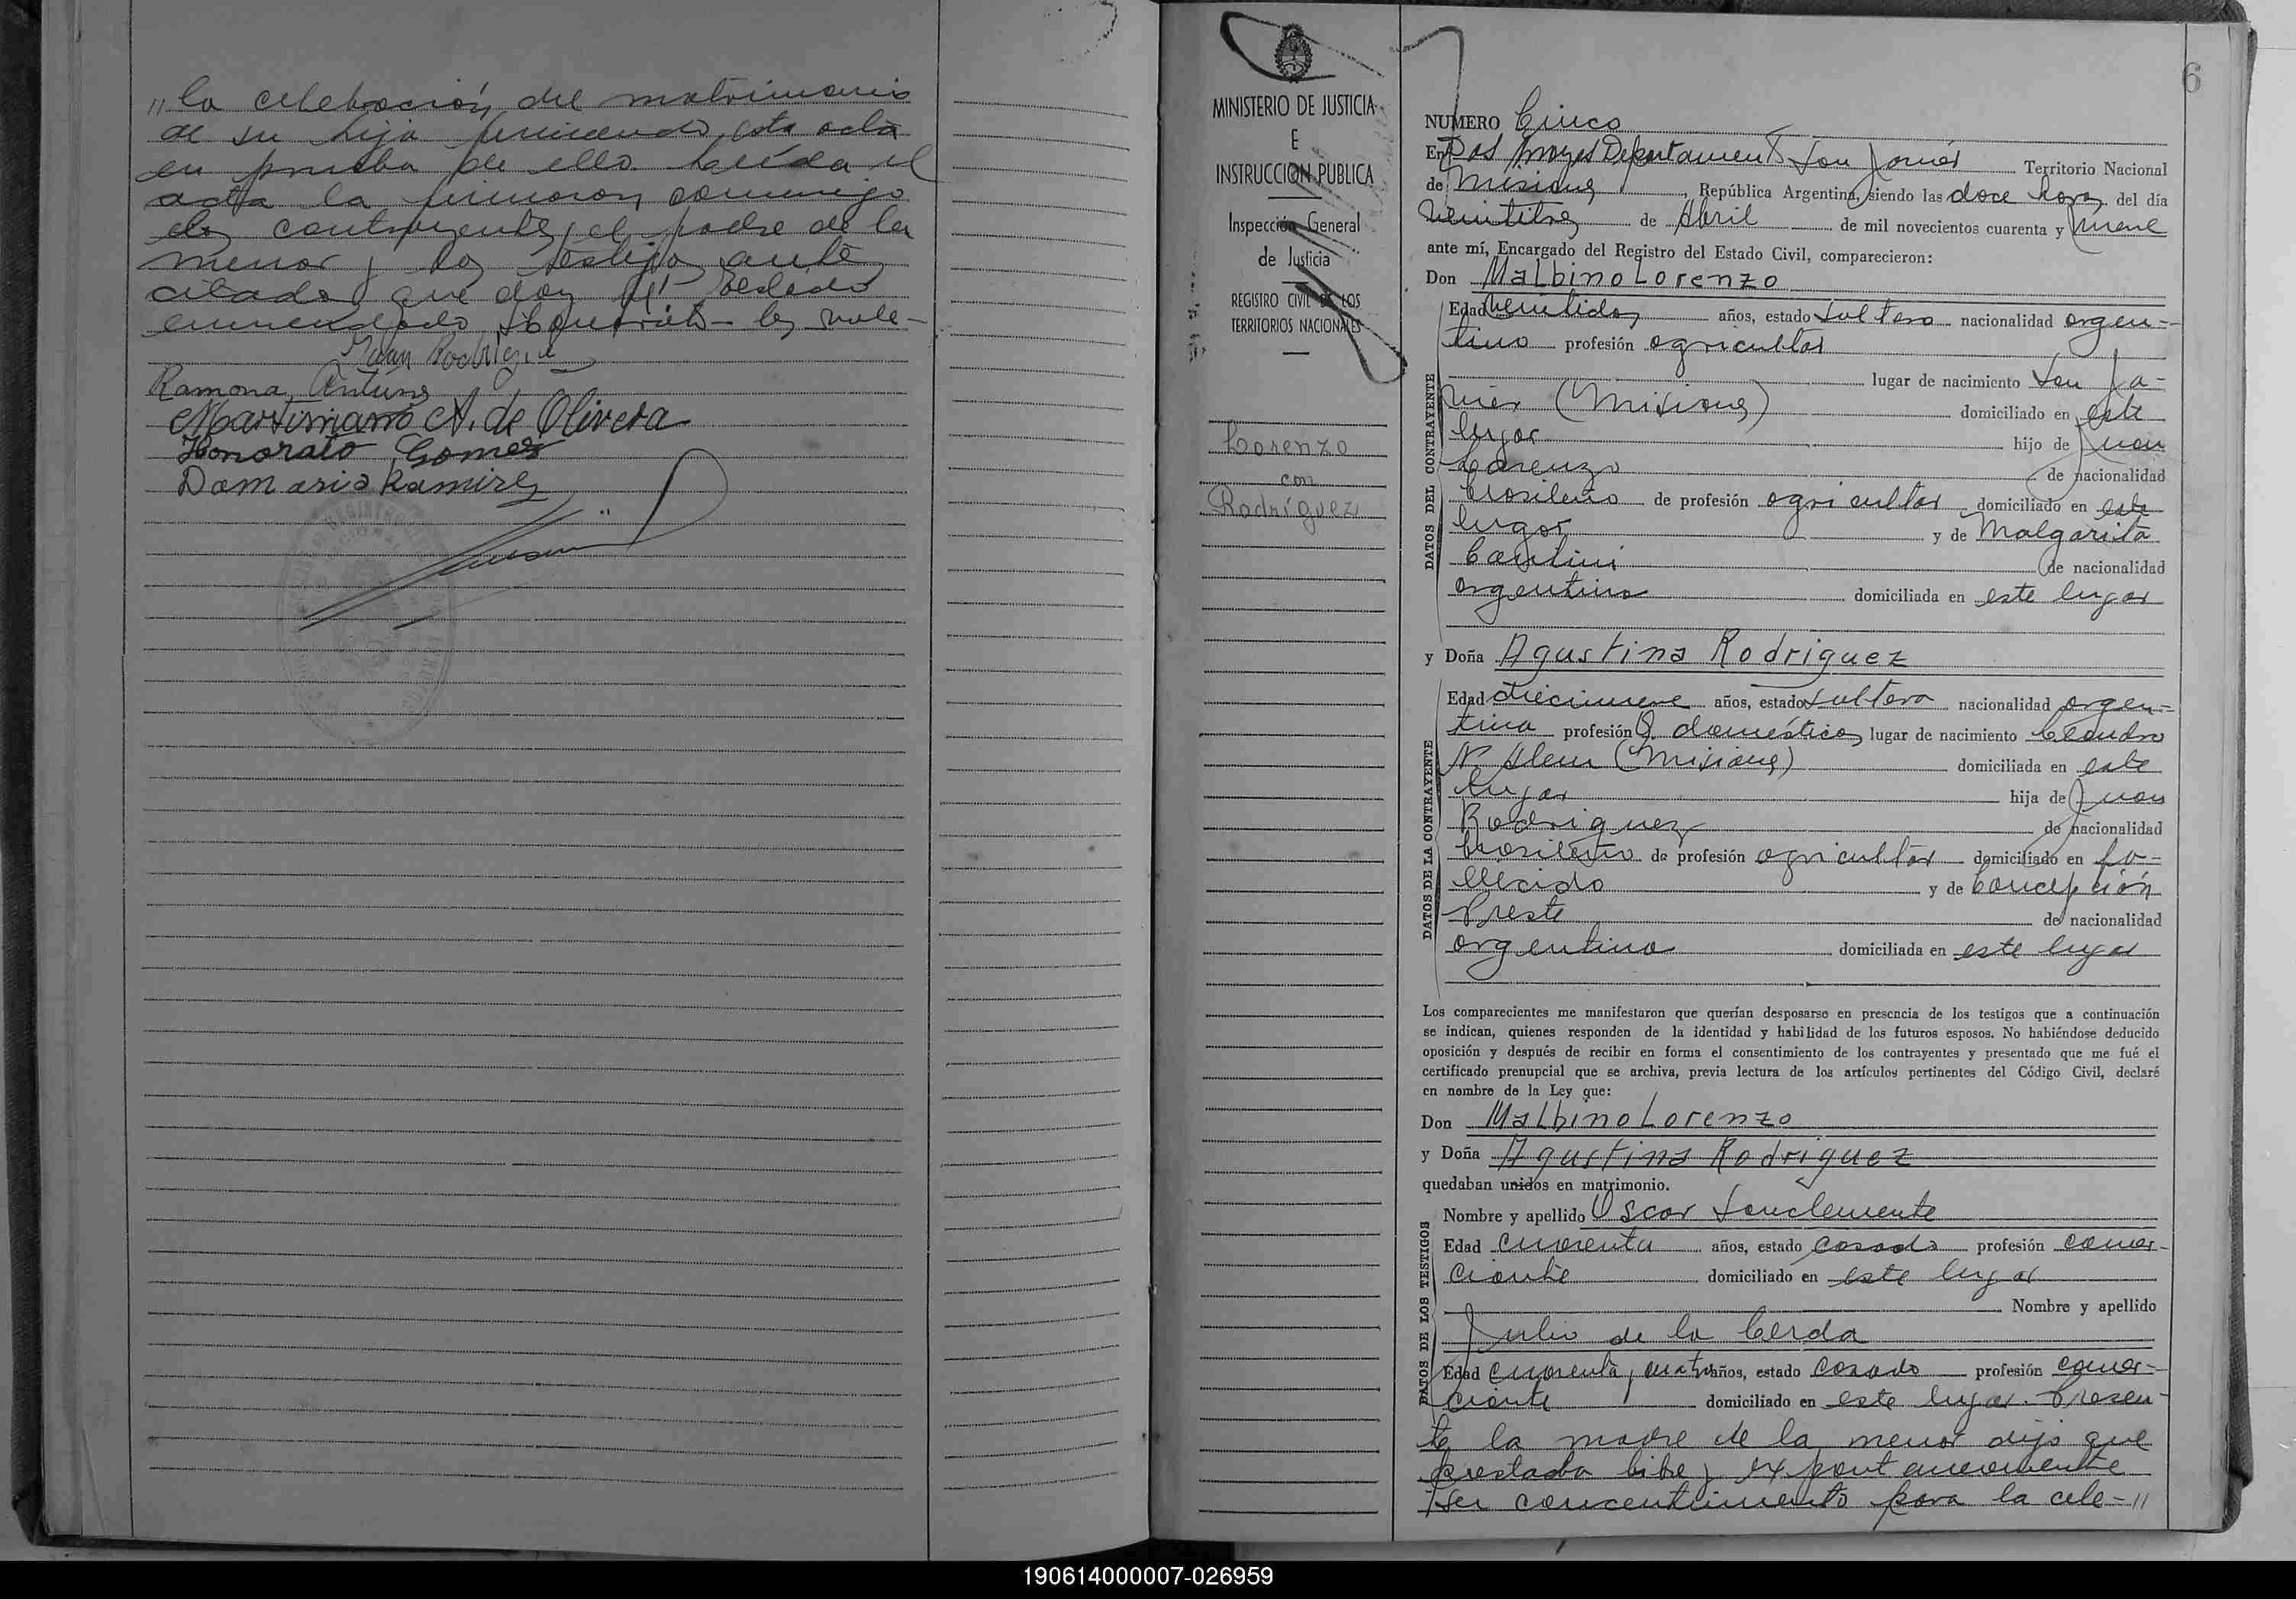 // la celebración del matrimonio
de su hija firmando esta acta
en prueba de ello. Leída el
acta la firmaron conmigo
los contrayentes, el padre de la
menor y los testigos ante
citados que doy fé. Testado
enmendado
vale-
Juan Rodrigue
Ramona Antune
Marsimiano A. de Olivera
Honorato Gomes
Damasio Ramires
MINISTERIO DE JUSTICIA
E
INSTRUCCION PUBLICA
Inspección General
de Justicia
REGISTRO CIVIL DE LOS
TERRITORIOS NACIONALES
Lorenzo
con
Rodríguez
6
NUMERO Cinco
En Dos Arroyos Departamento San Javier Territorio Nacional
de Misiones, República Argentina, siendo las doce horas del día
veintitres de Abril de mil novecientos cuarenta y nueve
ante mí, Encargado del Registro del Estado Civil, comparecieron:
Don Malbino Lorenzo
DATOS DEL CONTRAYENTE
Edad veintidos años, estado soltero nacionalidad argen-
tino profesión agricultor
lugar de nacimiento San Ja-
vier (Misiones) domiciliado en este
lugar hijo de Juan
Lorenzo de nacionalidad
brasileno de profesión agricultor domiciliado en este
lugar y de Malgarita
de nacionalidad
argentina domiciliada en este lugar
y Doña Agustina Rodriguez
DATOS DE LA CONTRAYENTE
Edad diecinueve años, estado soltera nacionalidad argen-
tina profesión Q. domésticos lugar de nacimiento Leandro
N. Alem (Misiones) domiciliada en este
lugar hija de Juan
Rodriguez de nacionalidad
brasileño de profesión agricultor domiciliado en fa-
llecido y de Concepción
Preste de nacionalidad
argentina domiciliada en este lugar
Los comparecientes me manifestaron que querían desposarse en presencia de los testigos que a continuación
se indican, quienes responden de la identidad y habilidad de los futuros esposos. No habiéndose deducido
oposición y después de recibir en forma el consentimiento de los contrayentes y presentado que me fué el
certificado prenupcial que se archiva, previa lectura de los artículos pertinentes del Código Civil, declaré
en nombre de la Ley que:
Don Malbino Lorenzo
y Doña Agustina Rodriguez
quedaban unidos en matrimonio.
DATOS DE LOS TESTIGOS
Nombre y apellido Oscar Sanclemente
Edad cuarenta años, estado casado profesión comer-
ciante domiciliado en este lugar
Nombre y apellido
Julio de la Cerda
Edad cuarenta y cuatro años, estado casado profesión comer-
ciante domiciliado en este lugar. Presen-
te la madre de la menor dijo que
prestaba libre y expontaneamente
su concentimiento para la cele-//
190614000007-026959